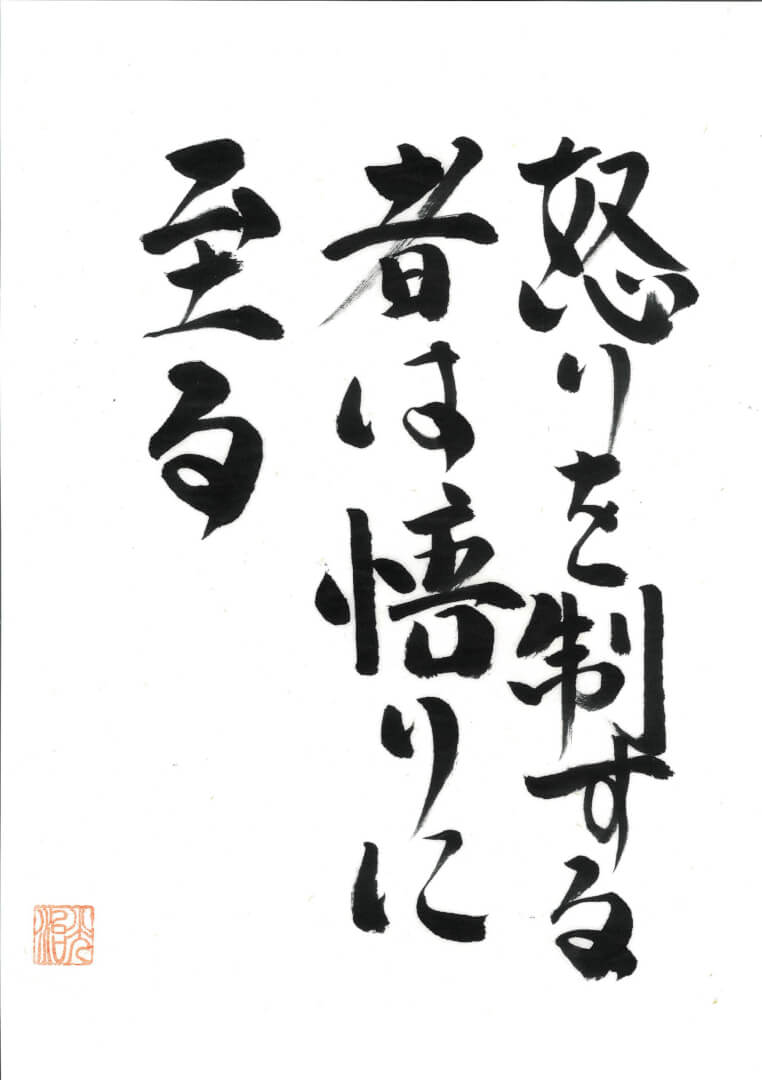 怒りを制する
者は悟りに
至る